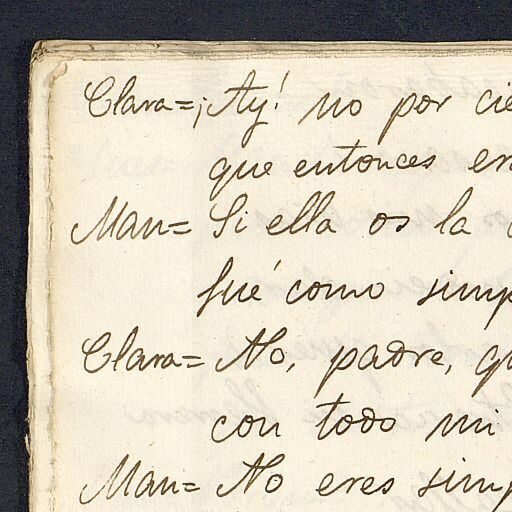 Clara=¡Ay! no por cie
que entonces er
Man= Si ella os la
fué como simp
Clara= No, padre, qu
con todo mi
Man= No eres simp